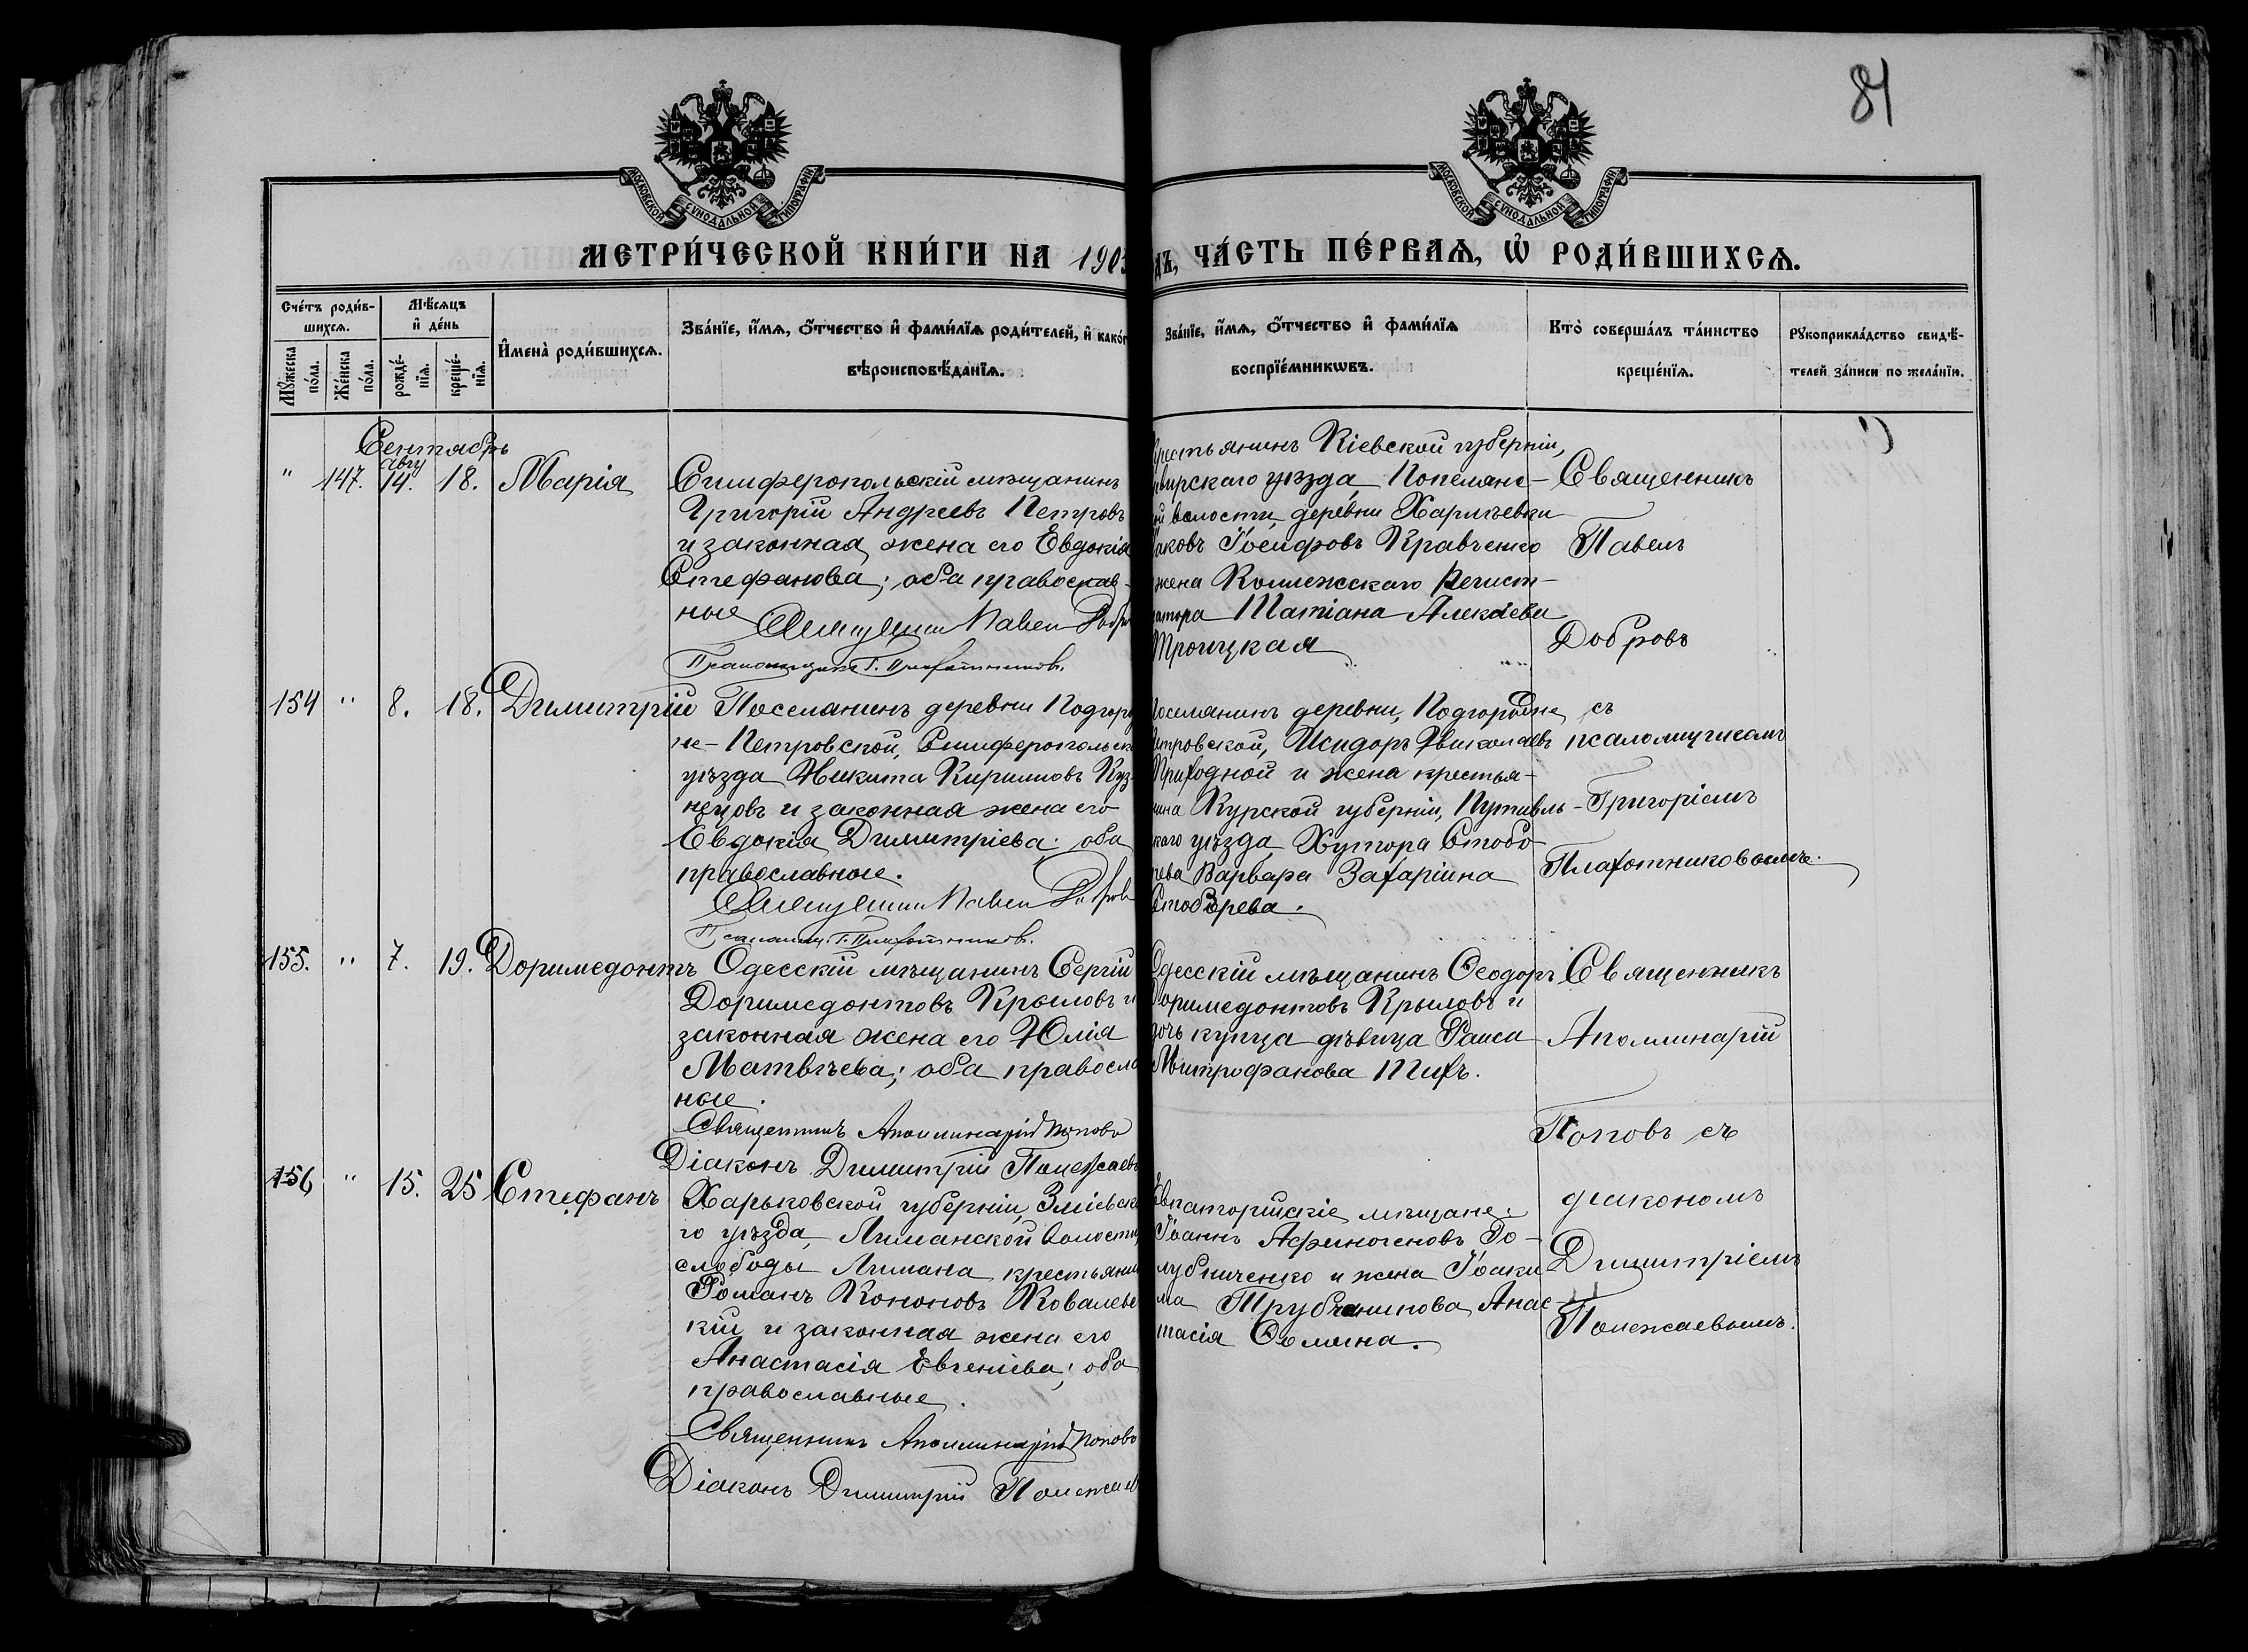 81
МОСКОВСКОЙ СѴНОДАЛЬНОЙ ТИПОГРАФІИ
МОСКОВСКОЙ СѴНОДАЛЬНОЙ ТИПОГРАФІИ
МЕТРИ́ЧЕСКОЙ КНИ́ГИ НА 1903
ДЪ, ЧА́СТЬ ПЕ́РВАѦ, Ѡ҆ РОДИ́ВШИХСѦ.
Сче́тъ роди́в-
шихсѧ.
Мꙋ́жеска
по́ла.
Же́нска
по́ла.
Мѣ́сѧцъ
и҆ де́нь
рожде́-
нїѧ.
креще́-
нїѧ.
И҆мена̀ роди́вшихсѧ.
Зва́нїе, и҆́мѧ, ѻ҆́тчество и҆ фами́лїѧ роди́телей, и҆ како́г
вѣроисповѣ́данїѧ.
Зва́нїе, и҆́мѧ, ѻ҆́тчество и҆ фами́лїѧ
воспрїе́мникѡвъ.
Кто̀ соверша́лъ та́инство
креще́нїѧ.
Рꙋкоприкла́дство свидѣ́-
телей за́писи по жела́нїю.
Сентябрь
" 147. авгу 14. 18. Марія
Симферопольскій мѣщанинъ
Григорій Андреевъ Петровъ
и законная жена его Евдокія
Стефанова; оба православ-
ные
Священник Павел Добров
Псаломщик Г. Плахотников.
крестьянинъ Кіевской губерніи,
Сквирскаго уѣзда, Попелянс-
ой волости, деревни Харлѣевки
Іаковъ Іосифовъ Кравченко
жена Коллежскаго Регист-
ратора Татіана Алексіева
Троицкая
Священникъ
Павелъ
Добровъ
154 " 8. 18. Димитрій
Поселянинъ деревни Подгород
не-Петровской, Симферопольск
уѣзда Никита Кирилловъ Куз-
нецовъ и законная жена его
Евдокія Димитріева; оба
православные.
Священник Павел Добров
Псаломщ. Г. Плахотников.
Поселянинъ деревни, Подгородне
Петровской, Исидоръ Николаевъ
Приходной и жена крестья-
нина Курской губерніи, Путивль-
скаго уѣзда, Хутора Стобо-
рева Варвара Захаріина
Стоборева.
съ
псаломщикомъ
Григоріемъ
Плахотниковымъ.
155. " 7. 19. Доримедонтъ
Одесскій мѣщанинъ Сергій
Доримедонтовъ Крыловъ и
законная жена его Юлія
Матвѣева; оба правосла
ные.
Священникъ Аполлинарій Поповъ
Діаконъ Димитрій Полежаевъ
Одесскій мѣщанинъ Ѳеодоръ
Доримедонтовъ Крыловъ и
дочь купца дѣвица Раиса
Митрофанова Пихъ.
Священникъ
Аполлинарій
Поповъ съ
діакономъ
Димитріемъ
Полежаевымъ.
156 " 15. 25 Стефанъ
Харьковской губерніи, Зміевска
го уѣзда, Лиманской волости,
слободы Лимана крестьянин
Романъ Кононовъ Ковалевс
кій и законная жена его
Анастасія Евгеніева; оба
православные.
Священникъ Аполлинарій Поповъ
Діаконъ Димитрій Полежаев
Евпаторійскіе мѣщане:
Іоаннъ Афиногеновъ Го-
лубниченко и жена Іоаки
ма Трубчанинова, Анас-
тасія Ѳомина.